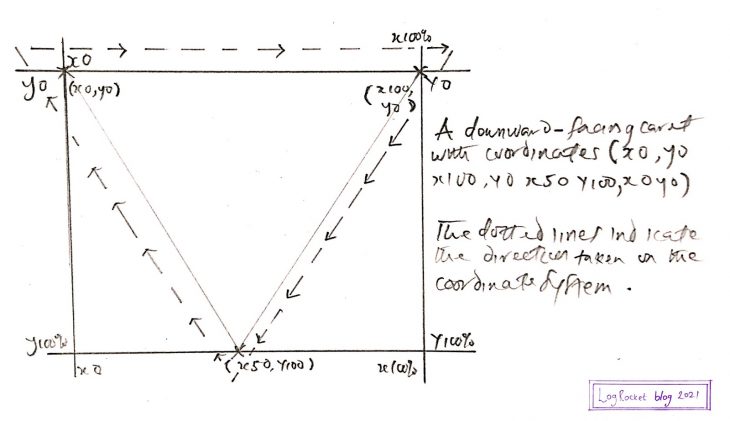 x100%
x0
y0
y0
(x0,y0)
(x100,
y0)
A downward-facing caret
with coordinates (x0,y0
x100,y0 x50 y100,x0y0)
The dotted lines indicate
the direction taken in the
coordinate system.
y100%
y100%
x0
(x50,y100)
x100%
LogRocket blog 2021